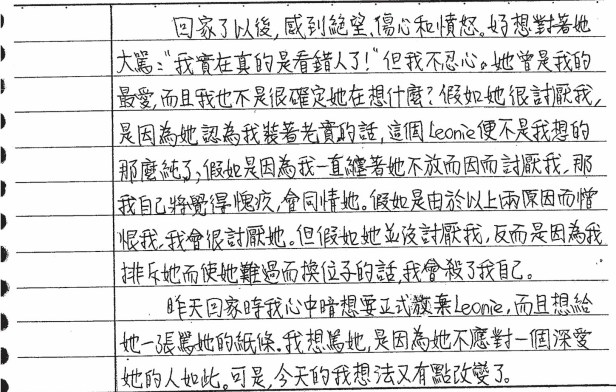 回家了以後,感到絕望、傷心和憤怒。好想對著她
大罵:"我實在真的是看錯人了!"但我不忍心。她曾是我的
最愛,而且我也不是很確定她在想什麼?假如她很討厭我,
是因為她認為我裝著老實的話,這個Leonie便不是我想的
那麼純了,假如是因為我一直纏著她不放而因而討厭我,那
我自己將覺得愧疚,會同情她。假如是由於以上兩原因而憎
恨我,我會很討厭她。但假如她並沒討厭我,反而是因為我
排斥她而使她難過而換位子的話,我會殺了我自己。
昨天回家時我心中暗想要正式放棄Leonie,而且想給
她一張罵她的紙條。我想罵她,是因為她不應對一個深愛
她的人如此。可是,今天的我想法又有點改變了。